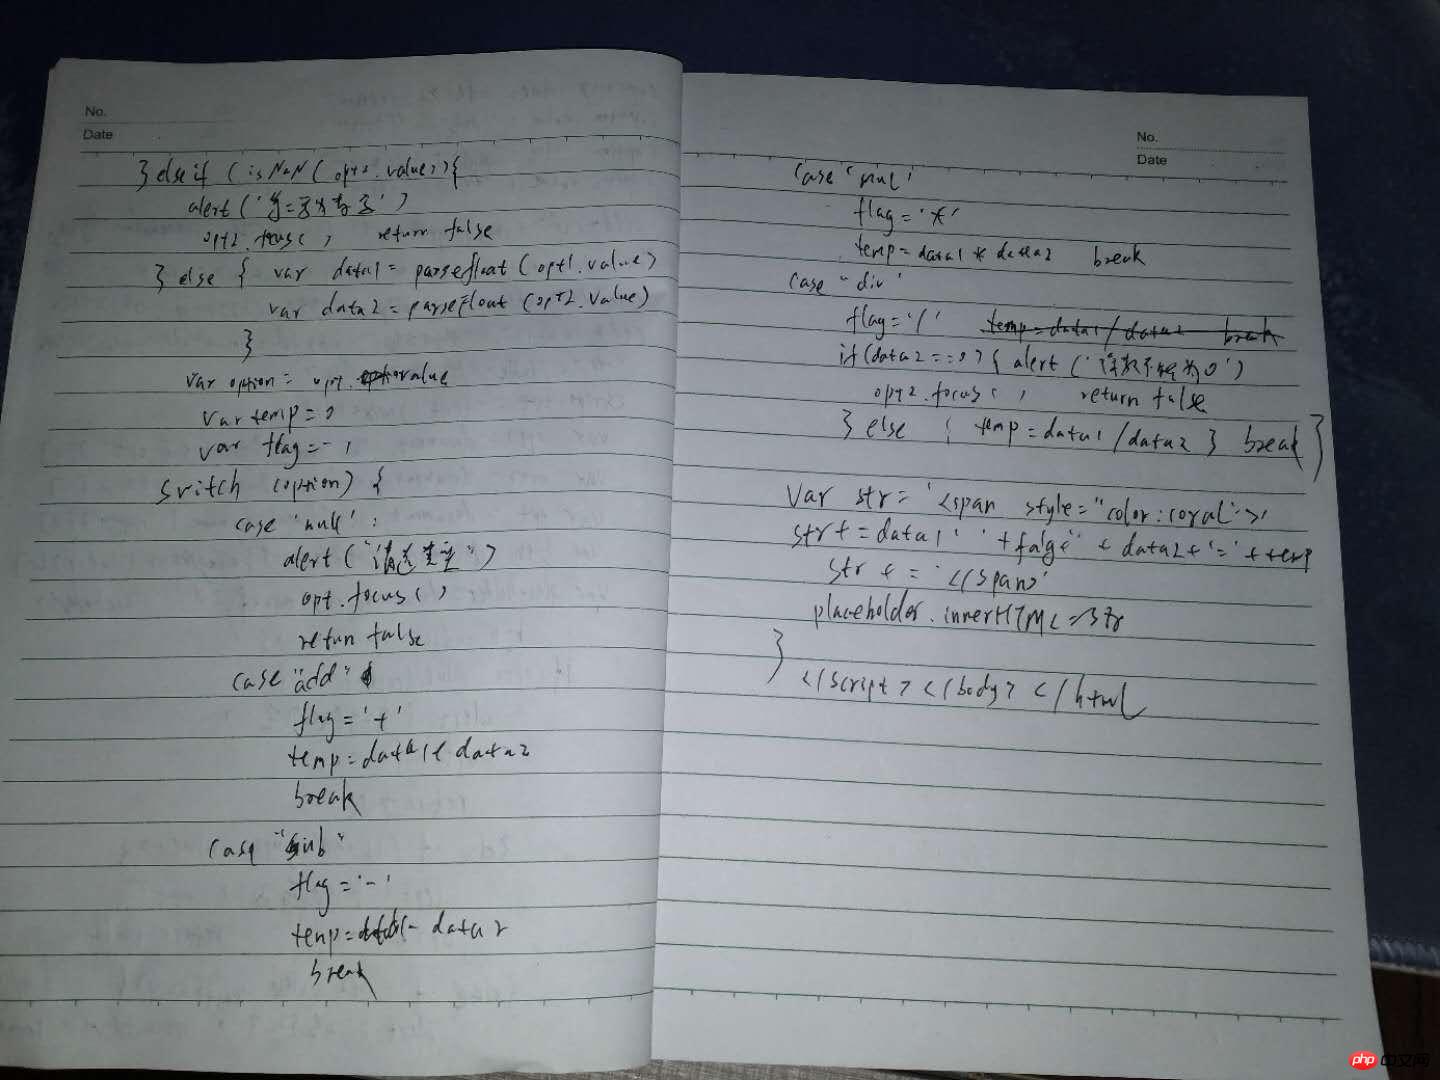 No.
Date
}else if (isNaN(opt2.value)){
alert('
opt2.focus() return false
} else { var data1= parsefloat(opt1.value)
var data2=parsefloat(opt2.value)
}
var option= opt.value
var temp=0
var flag=
switch (option) {
case 'null':
alert("请选
opt.focus()
return false
case "add"
flag='+'
temp=data1+data2
break
case "sub"
flag='-'
temp= - data2
break
No.
Date
case 'mul'
flag='*'
temp=data1 * data2 break
case "div'
flag='/' temp=data1/data2 break
if(data2==0){ alert('除数不能为0')
opt2.focus() return false
} else { temp=data1/data2 } break }
var str='<span style="color:coral">'
str+=data1' '+ + data2+'='+temp
str+='</span>'
placeholder.innerHTML=str
}
</script></body></html
php中文网